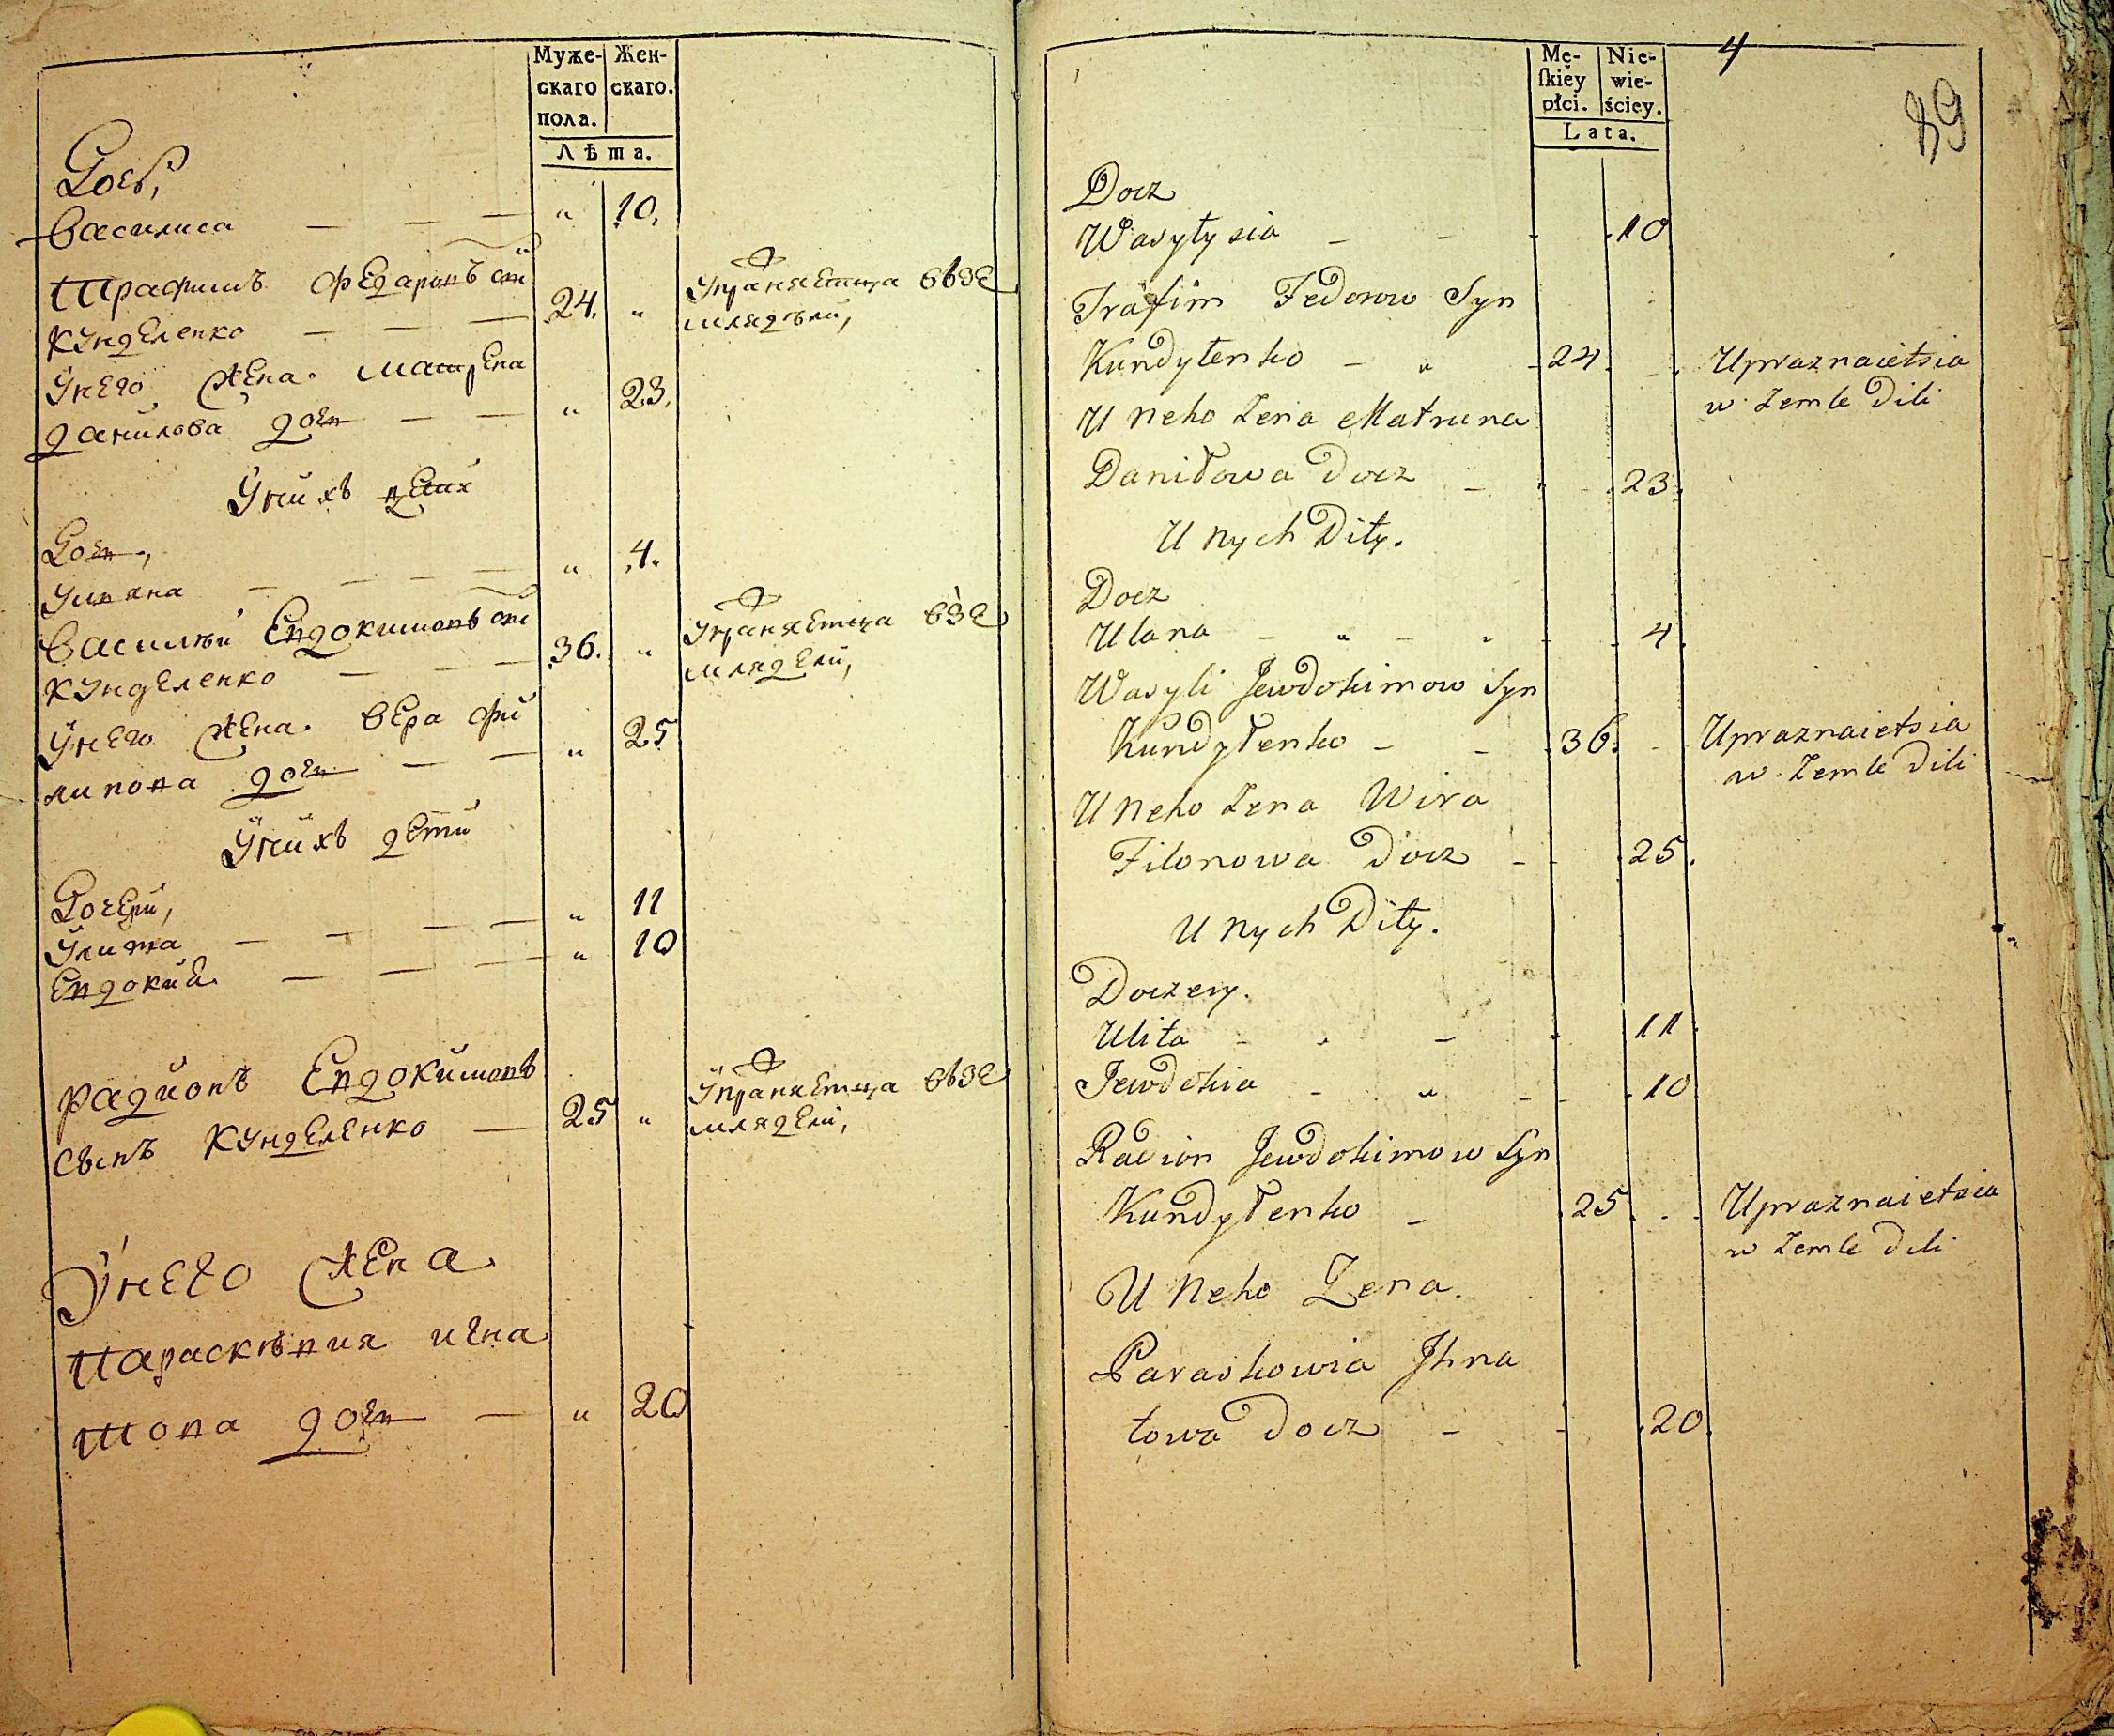 Муже- Жен-
скаго скаго.
пола.
Лѣта.
Дочь,
Василиса — — — „ 10.
Трафимъ Федаровъ сы
Кунделенко — — — 24. „ Упраняетца ввзе
млядѣли,
Унего жена. Матрена
Данилова дочь — — „ 23.
Унихъ дети
Дочь,
Уляна — — — — „ 4.
Василѣй Евдокимовъ сы
Кунделенко — — — 36. „ Упраняетца взе
млядели,
Унего жена. Вера фи
липова дочь — — „ 25
Унихъ дети
Дочери,
Улита — — — — „ 11
Евдокия — — — „ 10
Радионъ Евдокимовъ
сынъ Кунделенко — 25 „ Упраняетца ввзе
млядели,
Унего жена
Параскѣвия игна
това дочь — „ 20
4
89
Mę- Nie-
ſkiey wie-
płci. ściey.
Lata.
Docz
Wasyłysia — — 10
Trafim Fedorow Syn
Kundyłenko — „ 24. Upraznaietsia
w Zemle Dili
U Neho Zena Matruna
Daniłowa Docz — 23.
U Nych Dity.
Docz
Ulana — „ — „ 4.
Wasyli Jewdokimow Syn
Kundyłenko — — 36. Upraznaietsia
w Zemle Dili
U Neho Zena Wira
Filonowa Docz — 25.
U Nych Dity.
Doczery.
Ulita — „ — 11.
Jewdokia — „ — 10
Radion Jewdokimow Syn
Kundyłenko — 25. Upraznaietsia
w Zemle Dili
U Neho Zena.
Paraskowia Ihna
towa Docz — 20.